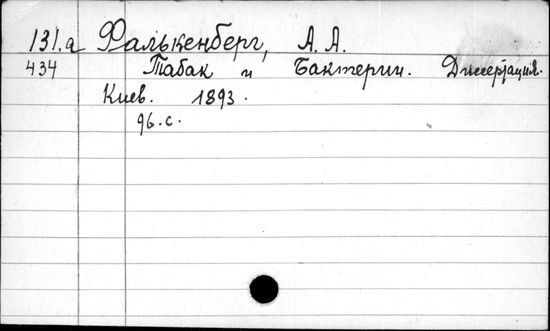 131.a Фалькенберг, А. А.
434 Табак и Бактерии. Диссертация.
Киев. 1893.
96.с.